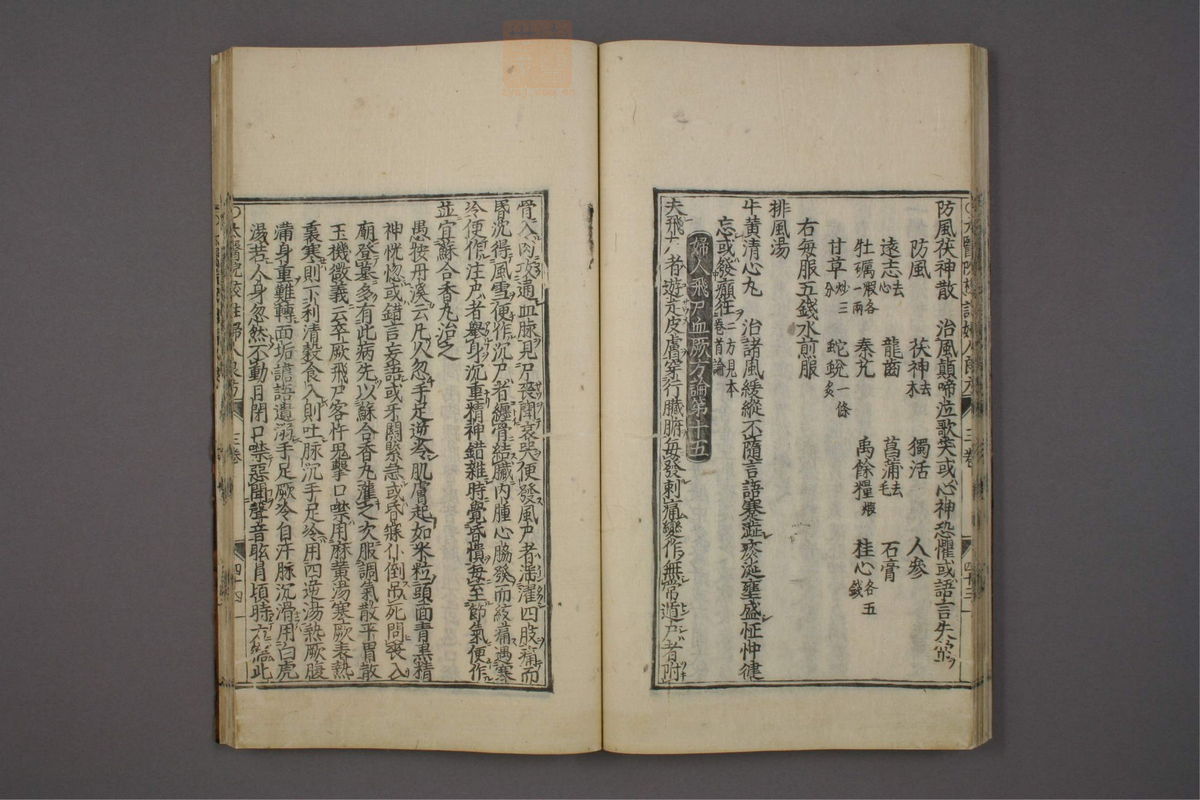 防風茯神散　治風顛啼泣歌笑或心神恐懼或語言失常
防風　茯神去木　獨活　人參
遠志去心　龍齒　菖蒲去毛　石膏
牡礪煆各一兩　秦艽　禹餘糧煆　桂心各五錢
甘草炒三分　蛇蛻一條炙
右每服五錢水煎服
排風湯
牛黃清心丸　治諸風緩縱不隨言語蹇澁痰涎壅盛怔忡健
忘或發癲狂二方見本卷首論
婦人飛尸血厥方論第十五
夫飛尸者遊走皮膚穿行臟腑每發刺痛變作無常遁尸者附
骨入肉攻遺血脉見尸喪聞哀哭便發風尸者滛濯四肢痛而
昏沉得風雪便作沉尸者纏骨結臟內腫心脇發而絞痛遇寒
冷便作注尸者舉身沉重精神錯雜時覺昏憒每至節氣便作
並宜蘇合香丸治之
愚按丹溪云凡人忽手足逆冷肌膚起如米粒頭面青黑精
神恍惚或錯言妄語或牙關緊急或昏寐仆倒吊死問喪入
廟登墓多有此病先以蘇合香丸灌之次服調氣散平胃散
玉機微義云卒厥飛尸客忤鬼擊口噤用麻黃湯寒厥表熱
裏寒則下利清穀食入則吐脉沉手足冷用四逆湯熱厥腹
滿身重難轉面垢譫語遺溺手足厥冷自汗脉沉滑用白虎
湯若人身忽然不動目閉口噤惡聞聲音眩冒頃時